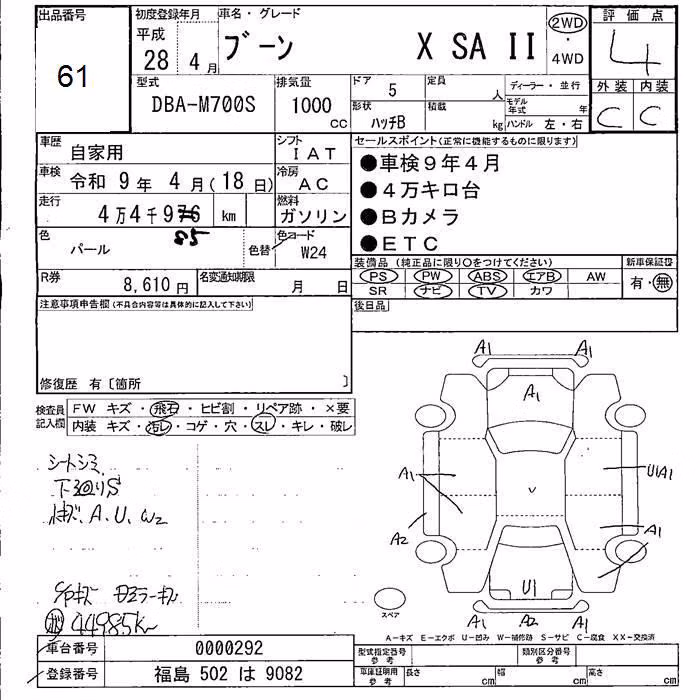 出品番号
61
初度登録年月
平成
28 4 月
車名・グレード
ブーン X SA II
2WD
・
4WD
評価点
4
外装 内装
C C
型式
DBA-M700S
排気量
1000
CC
ドア
5
形状
ハッチB
定員
人
積載
kg
ディーラー・並行
モデル年式
年
ハンドル 左・右
車歴
自家用
シフト
IAT
車検
令和 9 年 4 月 (18 日)
冷房
AC
走行
4万4千976 km
85
燃料
ガソリン
色
パール
色替
色コード
W24
R券
8,610 円
名変通知期限
月 日
セールスポイント(正常に機能するものに限ります)
●車検9年4月
●4万キロ台
●Bカメラ
●ETC
装備品(純正品に限り○をつけてください)
新車保証書
PS PW ABS エアB AW
SR ナビ TV カワ
有・無
注意事項申告欄(不具合内容等は具体的に記入して下さい)
後日品
修復歴 有〔箇所 〕
検査員
記入欄
FW キズ・飛石・ヒビ割・リペア跡・×要
内装 キズ・汚レ・コゲ・穴・スレ・キレ・破レ
シートシミ
下廻りS
A、U、W2
44985km
A1 A1
A1
A1
U1A1
A2
A1
U1
A1 A2 A1
スペア
A-キズ E-エクボ U-凹み W-補修跡 S-サビ C-腐食 XX-交換済
車台番号
0000292
登録番号
福島 502 は 9082
型式指定番号
参考
類別区分番号
参考
車庫証明用
参考
長さ
cm
幅
cm
高さ
cm